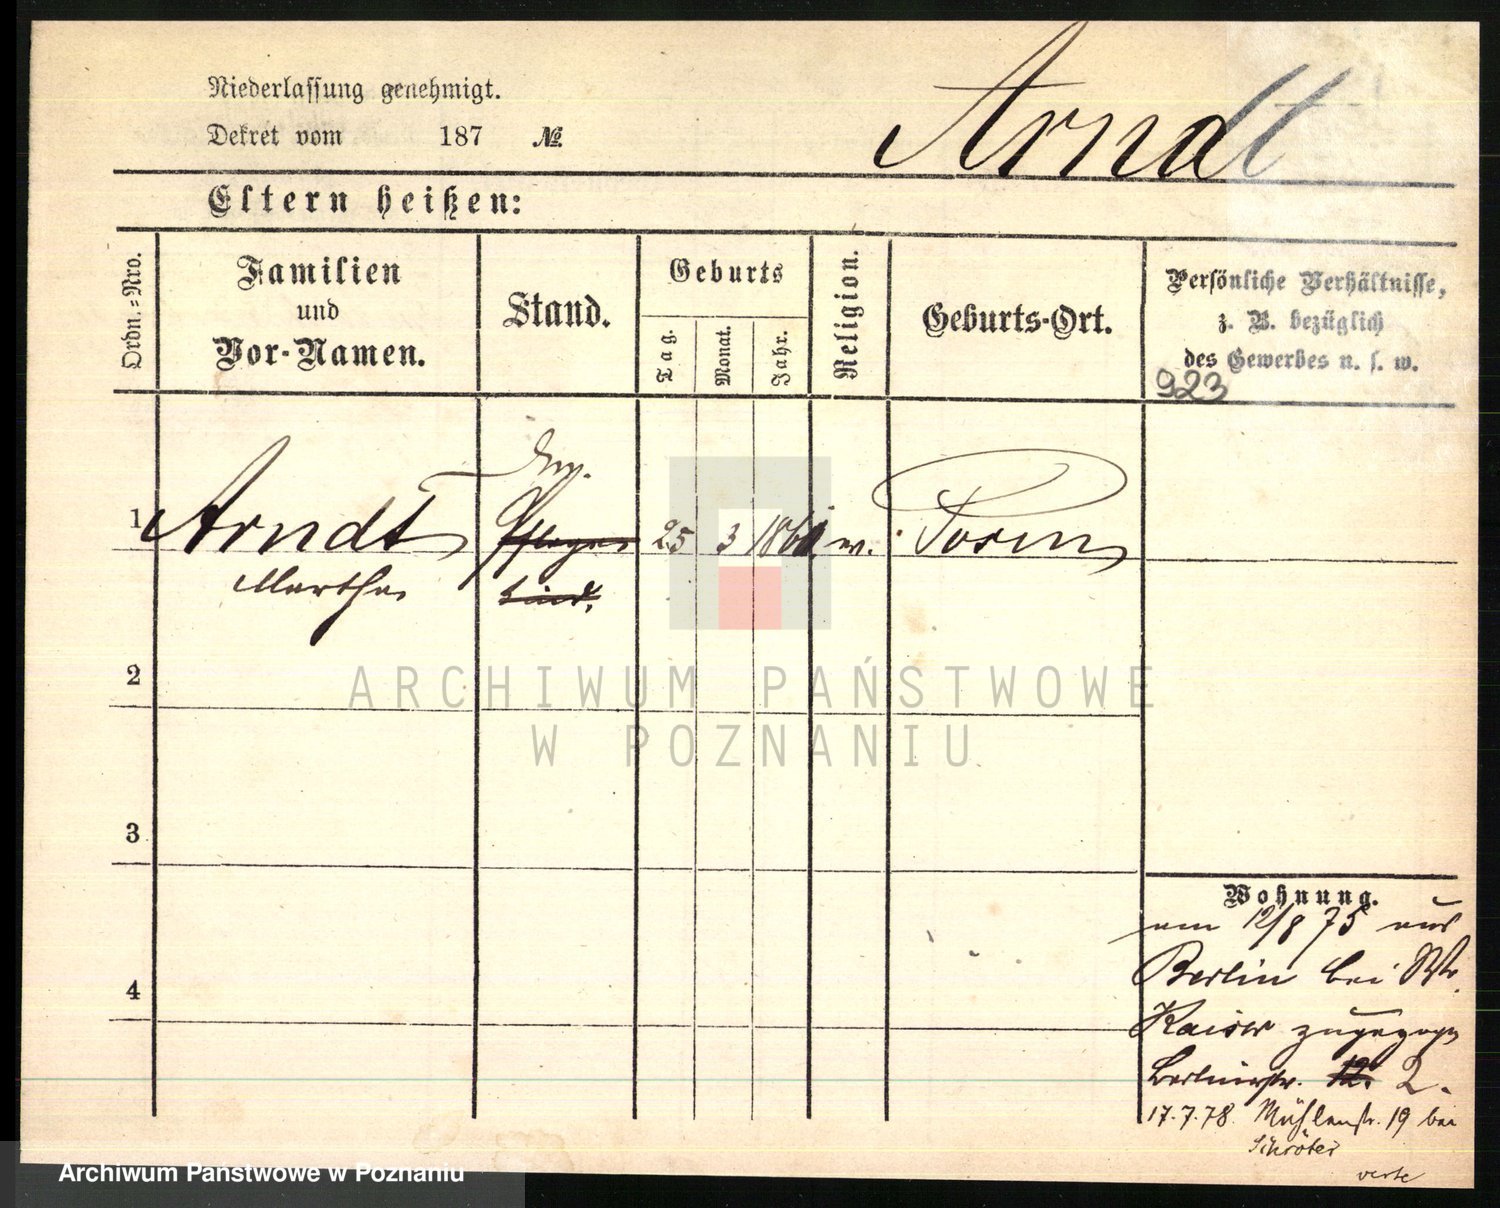 Niederlassung genehmigt.
Dekret vom 187 №
Arndt
Eltern heißen:
Ordn.=Nro.
Familien
und
Vor-Namen.
Stand.
Geburts
Tag.
Monat.
Jahr.
Religion.
Geburts-Ort.
Persönliche Verhältnisse,
z. B. bezüglich
des Gewerbes u. s. w.
923
1 Arndt Pflege 25 3 186 ev. Posen
Martha kind.
2
ARCHIWUM PAŃSTWOWE
W POZNANIU
3
4
Wohnung.
am 12/8 75 aus
Berlin bei
Kaiser zugezogen
Berlinerstr. 12. 2.
17.7.78. Mühlenstr. 19 bei
Schröter
verte
Archiwum Państwowe w Poznaniu